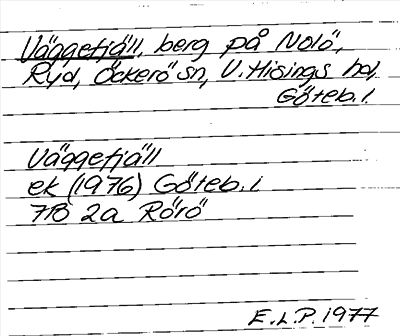 Väggefjäll, berg på Nolö,
Ryd, Öckerö sn, V. Hisings hd,
Göteb. l.
Väggefjäll
ek (1976) Göteb. l
7B 2a Rörö
E.L.P. 1977